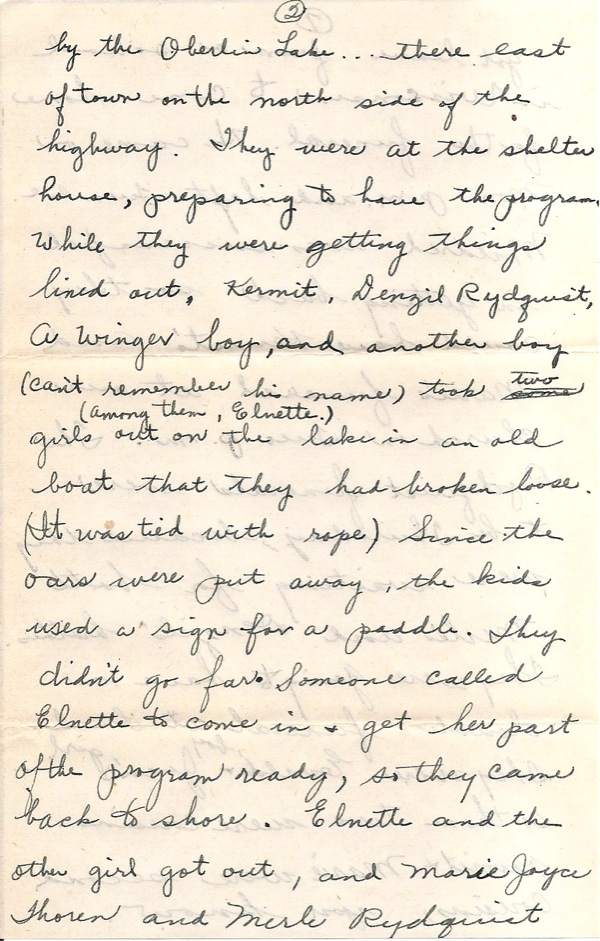 2
by the Oberlin Lake... there east
of town on the north side of the
highway. They were at the shelter
house, preparing to have the program.
While they were getting things
lined out, Kermit, Denzil Rydquist,
a Winger boy, and another boy
(can't remember his name) took some two
(among them, Elnette.)
girls out on the lake in an old
boat that they had broken loose.
(It was tied with rope) Since the
oars were put away, the kids
used a sign for a paddle. They
didn't go far. Someone called
Elnette to come in & get her part
of the program ready, so they came
back to shore. Elnette and the
other girl got out, and Marie Joyce
Thoren and Merle Rydquist